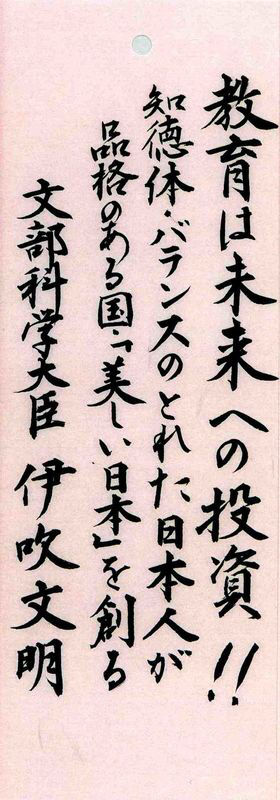 教育は未来への投資!!
知徳体・バランスのとれた日本人が
品格のある国・「美しい日本」を創る
文部科学大臣 伊吹文明